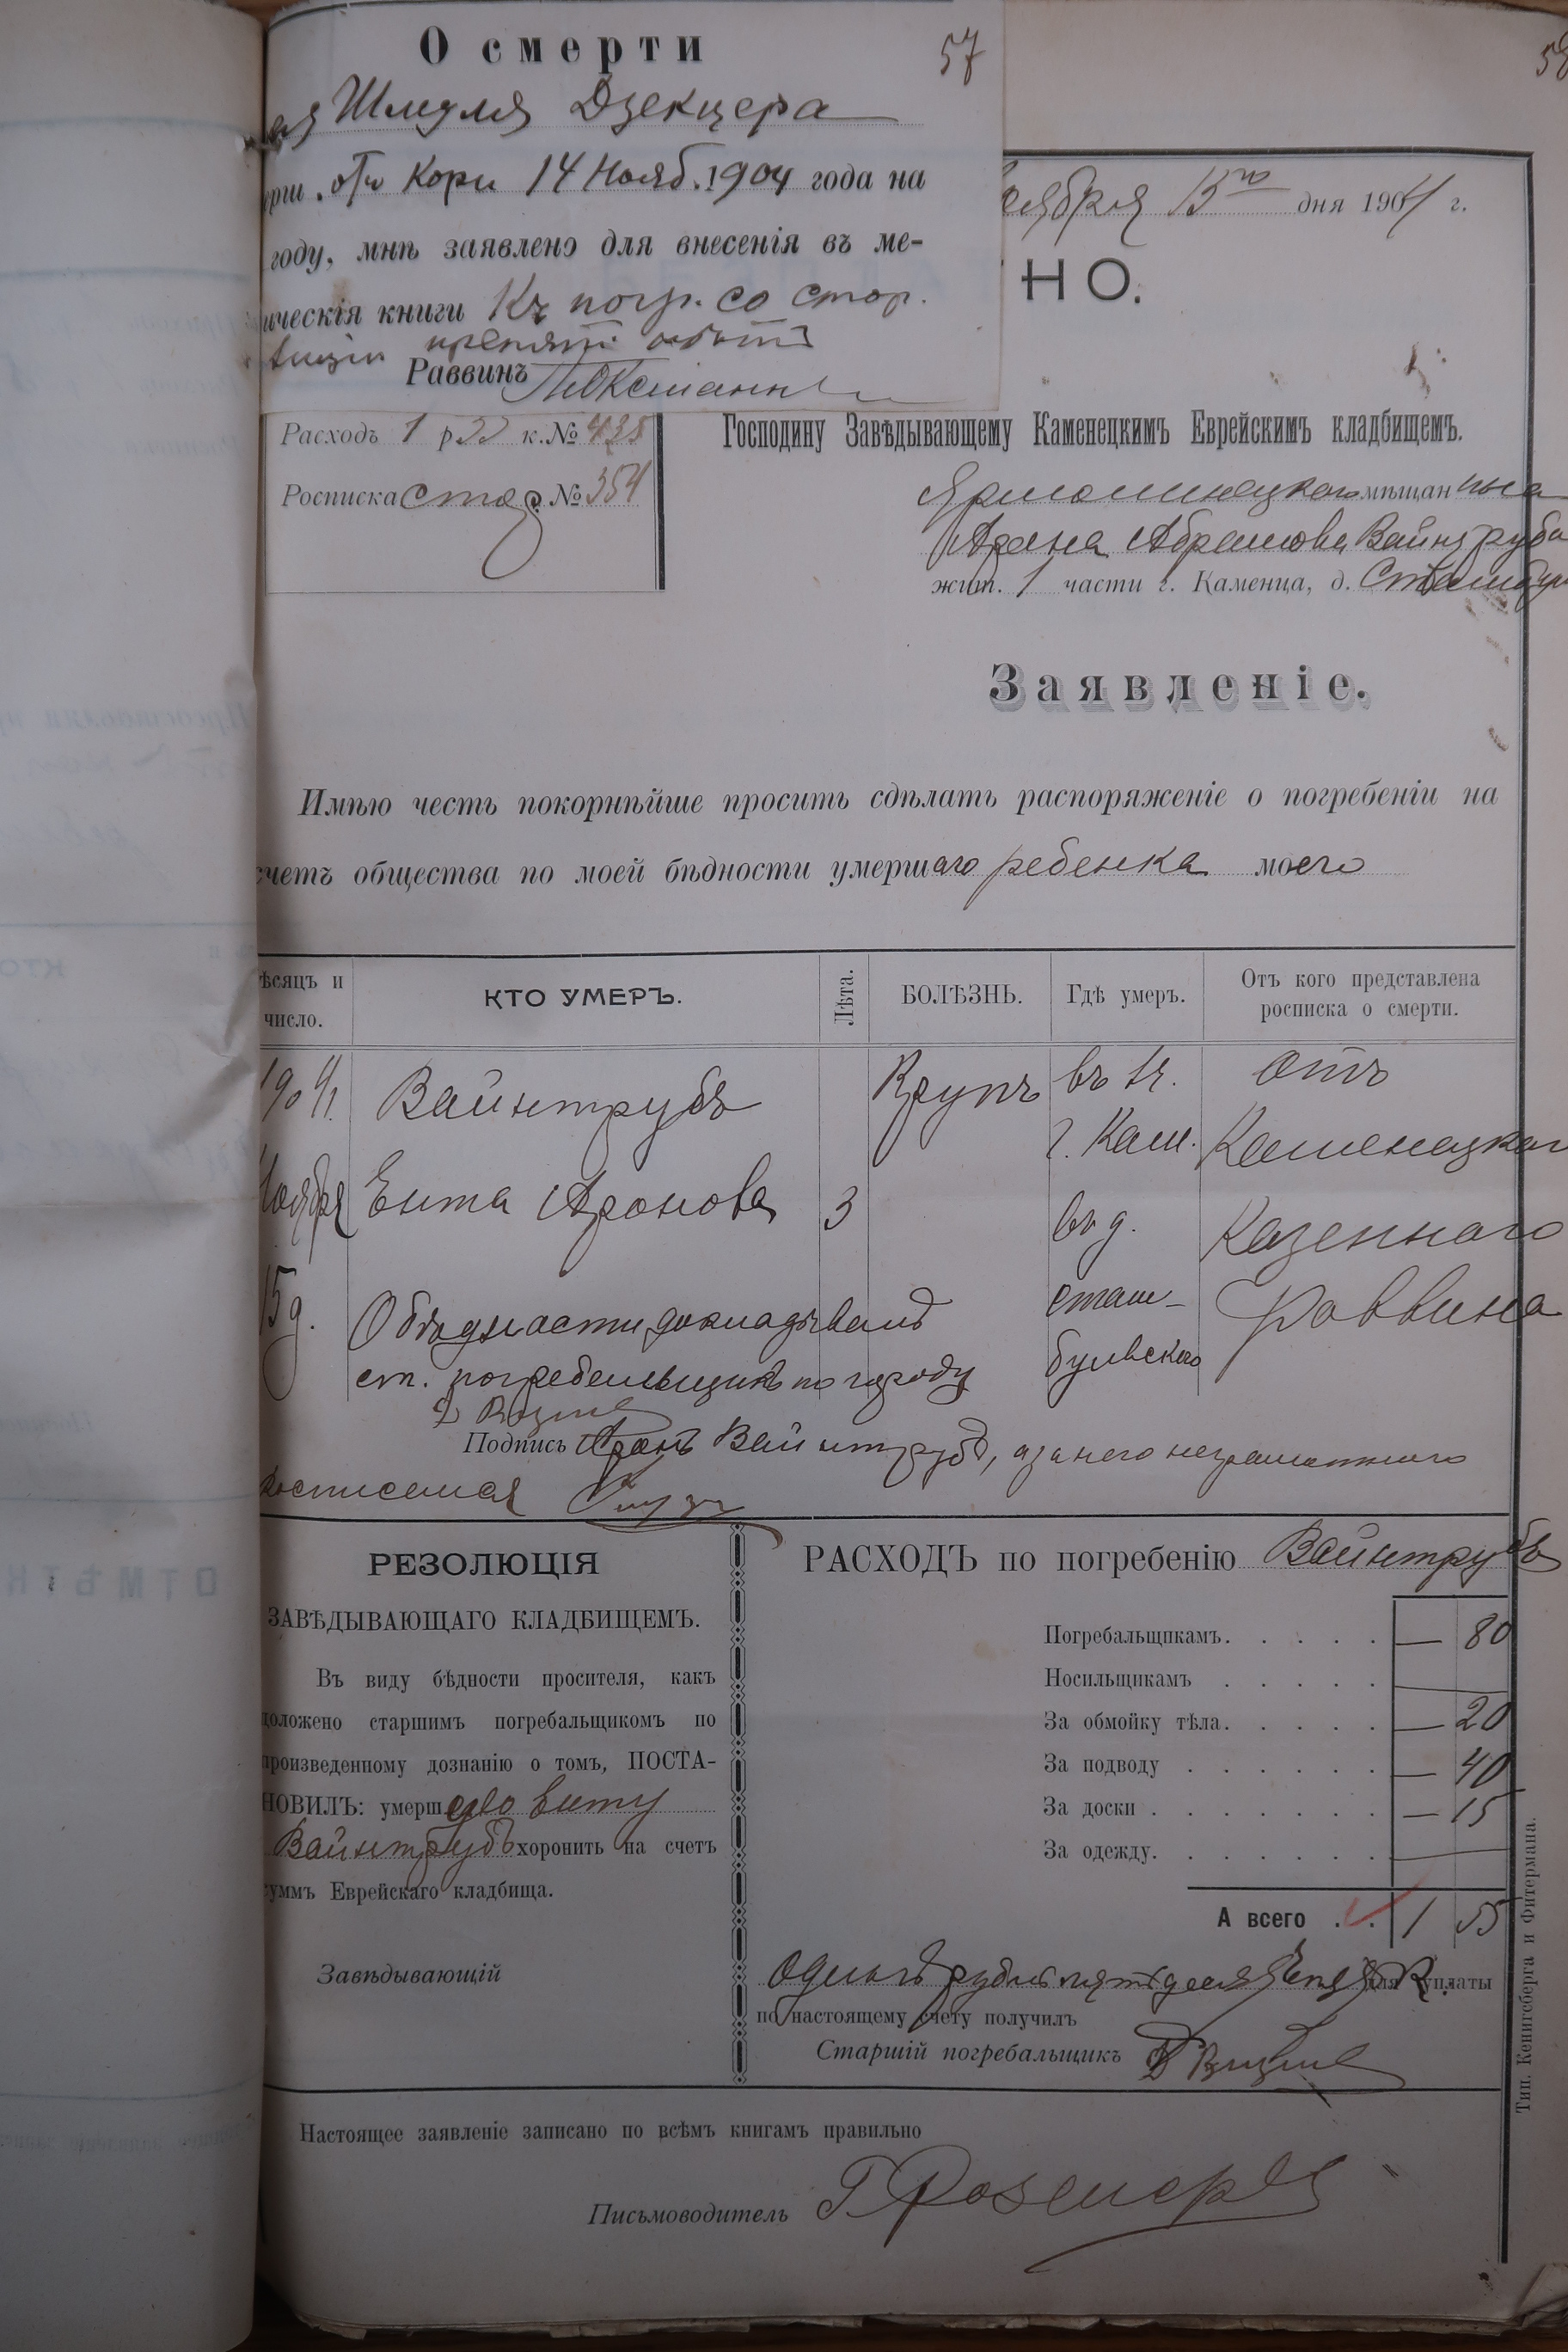 О смерти
57
58
Шмуля Дзекцера
отъ Кори 14 Нояб. 1904 года на
году, мнѣ заявлено для внесенія въ ме-
ическія книги Къ погр. со стор.
Раввинъ
ября 15го дня 1904 г.
НО.
Расходъ 1 р. к. №
Росписка стар. № 354
Господину Завѣдывающему Каменецкимъ Еврейскимъ кладбищемъ.
Ярмолинецкого мѣщанина
Арона Абрамова Вайнтруба
жит. 1 части г. Каменца, д.
Заявленіе.
Имѣю честь покорнѣйше просить сдѣлать распоряженіе о погребеніи на
счетъ общества по моей бѣдности умершаго ребенка моего
ѣсяцъ и число.
КТО УМЕРЪ.
Лѣта.
БОЛѢЗНЬ.
Гдѣ умеръ.
Отъ кого представлена росписка о смерти.
1904 Вайнтрубъ Крупъ въ 1ч. Отъ
г. Кам. Каменецкаго
Ноября Ента Аронова 3 въ д. Казеннаго
15 д. Стам- Раввина
О бѣдности докладывалъ
бульского
ст. погребельщикъ по городу
Подпись Аронъ Вайнтрубъ, а за него неграмотного
росписался
РЕЗОЛЮЦІЯ
ЗАВѢДЫВАЮЩАГО КЛАДБИЩЕМЪ.
Въ виду бѣдности просителя, какъ
доложено старшимъ погребальщикомъ по
произведенному дознанію о томъ, ПОСТА-
НОВИЛЪ: умерш Енту
Вайнтрубъ хоронить на счетъ
суммъ Еврейскаго кладбища.
Завѣдывающій
РАСХОДЪ по погребенію Вайнтрубъ
Погребальщикамъ. . . . . — 80
Носильщикамъ . . . . . —
За обмойку тѣла. . . . . — 20
За подводу . . . . . . — 40
За доски . . . . . . . — 15
За одежду. . . . . . . —
А всего . . 1 55
Одинъ рубль пятьдесятъ пять к. для уплаты
по настоящему счету получилъ
Старшій погребальщикъ
Настоящее заявленіе записано по всѣмъ книгамъ правильно
Письмоводитель
Тип. Кенигсберга и Фитермана.